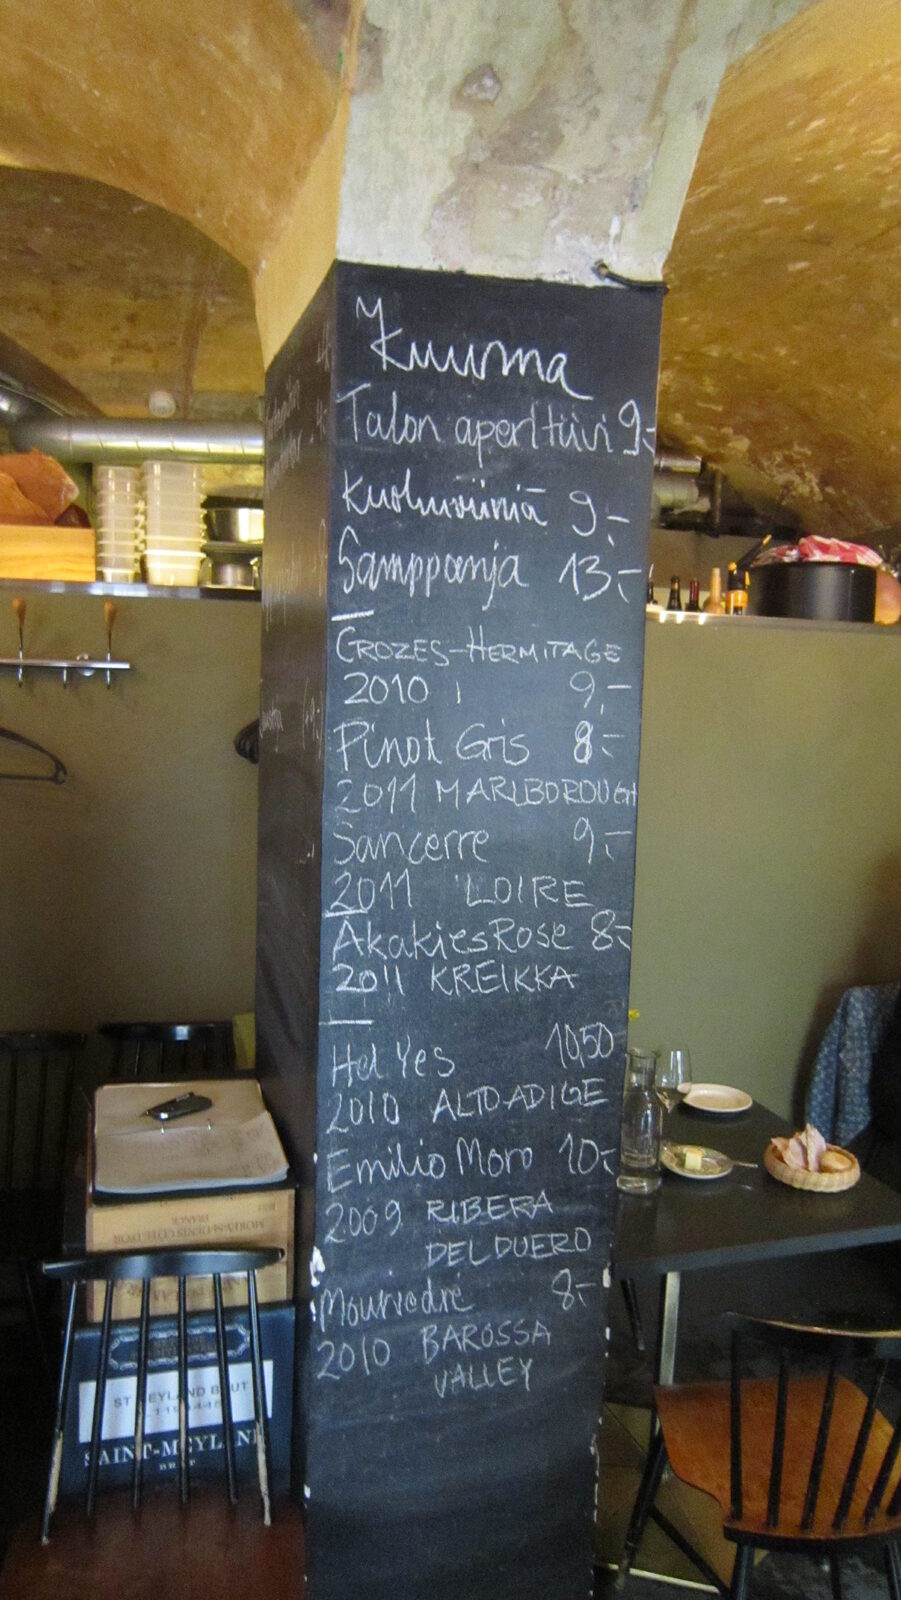 Kuuma
Talon aperitiivi 9,-
Kuohuviiniä 9,-
Samppanja 13,-
CROZES-HERMITAGE
2010 9,-
Pinot Gris 8,-
2011 MARLBOROUGH
Sancerre 9,-
2011 LOIRE
Akakies Rose 8,-
2011 KREIKKA
Hel Yes 10,50
2010 ALTO ADIGE
Emilio Moro 10,-
2009 RIBERA
DEL DUERO
Mourvedre 8,-
2010 BAROSSA
VALLEY
FRANCE
MOREY-ST-DENIS COTE D'OR
ST MEYLAND BRUT
SAINT-MEYLAND
BRUT